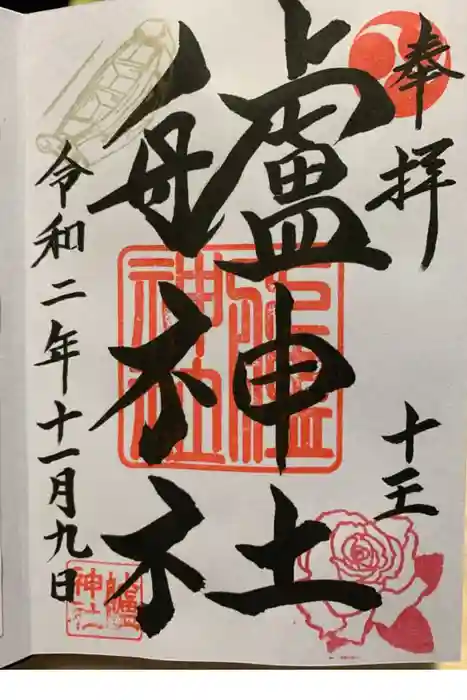 奉拝
十王
艫神社
艫
神社
令和二年十一月九日
艫
神社